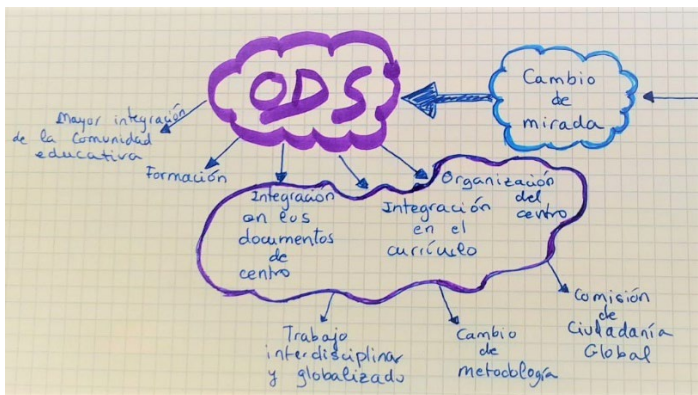 ODS
Cambio
de
mirada
Mayor integración
de la Comunidad
educativa
Formación
Integración
en los
documentos
de
centro
Integración
en el
currículo
Organización
del
centro
Trabajo
interdisciplinar
y globalizado
Cambio
de
metodología
Comisión
de
Ciudadanía
Global